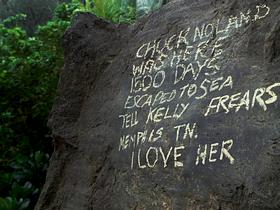 CHUCK NOLAND
WAS HERE
1500 DAYS
ESCAPED TO SEA
TELL KELLY FREARS
MEMPHIS, TN.
I LOVE HER